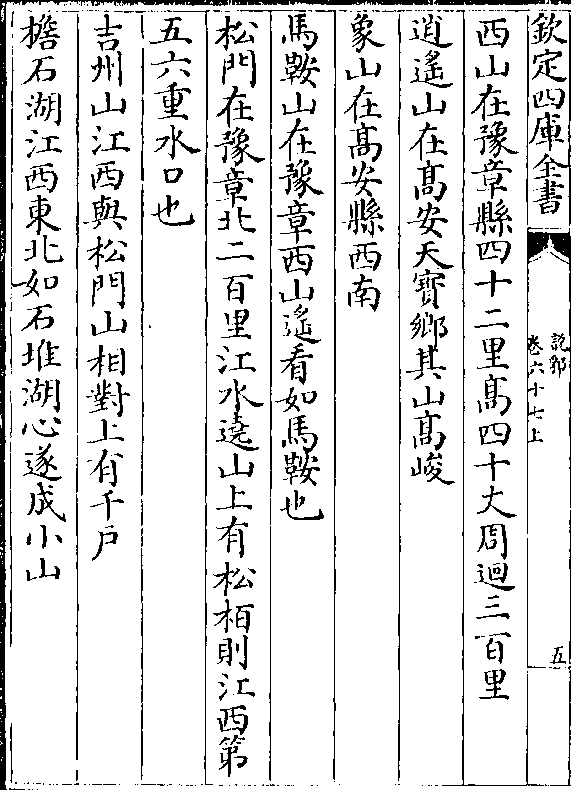 欽定四庫全書
說郛
卷六十七上
五
西山在豫章縣四十二里高四十大周迴三百里
逍遙山在高安天寳鄉其山高峻
象山在高安縣西南
馬鞍山在豫章西山遙看如馬鞍也
松門在豫章北二百里江水遶山上有松栢則江西第
五六重水口也
吉州山江西與松門山相對上有千戶
擔石湖江西東北如石堆湖心遂成小山